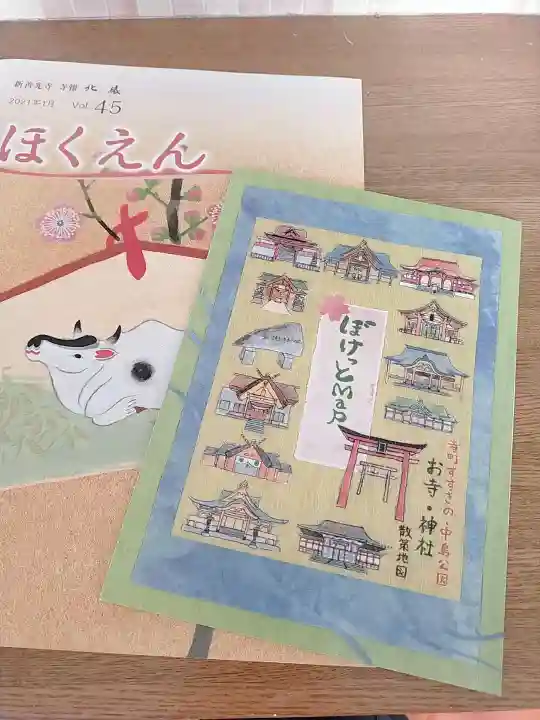 新善光寺 寺報 北縁
2021年1月 Vol.45
ほくえん
ぽけっとMaP
寺町すすきの・中島公園
お寺・神社
散策地図